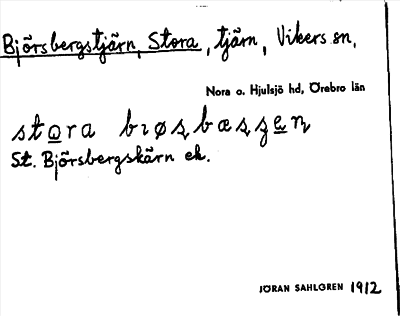 Björsbergstjärn, Stora, tjärn, Vikers sn.
Nora o. Hjulsjö hd, Örebro län
stora
St. Björsbergskärn ek.
JÖRAN SAHLGREN 1912